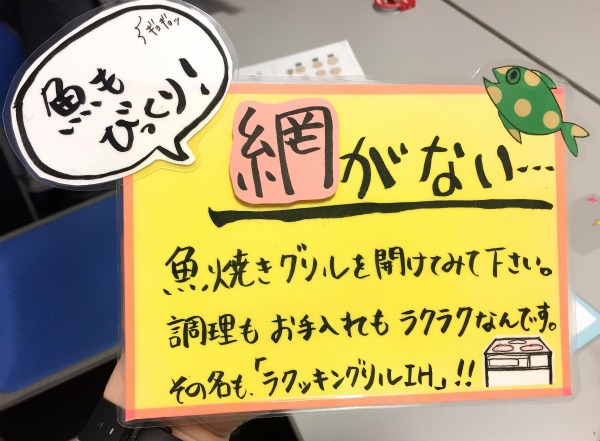 ギョギョッ
魚も
びっくり！
網がない…
魚焼きグリルを開けてみて下さい。
調理もお手入れもラクラクなんです。
その名も、「ラクッキングリルIH」!!